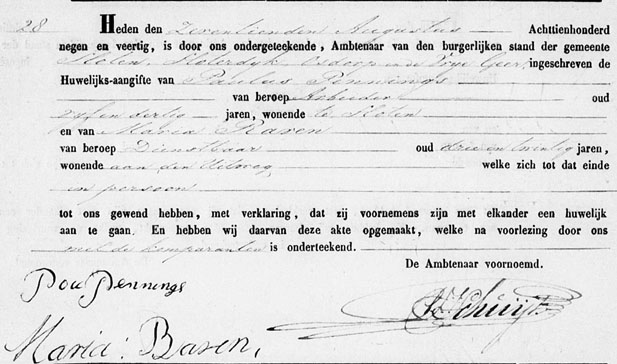 28 Heden den Zeventienden Augustus Achttienhonderd
negen en veertig, is door ons ondergeteekende, Ambtenaar van den burgerlijken stand der gemeente
Sloten, Sloterdijk, Osdorp en de Vrije Geer, ingeschreven de
Huwelijks-aangifte van Paulus Pennings
van beroep Arbeider oud
vijf en dertig jaren, wonende te Sloten
en van Maria Baren
van beroep Dienstbaar oud drie en twintig jaren,
wonende aan den Uitweg welke zich tot dat einde
in persoon
tot ons gewend hebben, met verklaring, dat zij voornemens zijn met elkander een huwelijk
aan te gaan. En hebben wij daarvan deze akte opgemaakt, welke na voorlezing door ons
met de komparanten is onderteekend.
De Ambtenaar voornoemd.
Pennings
Maria: Baren,